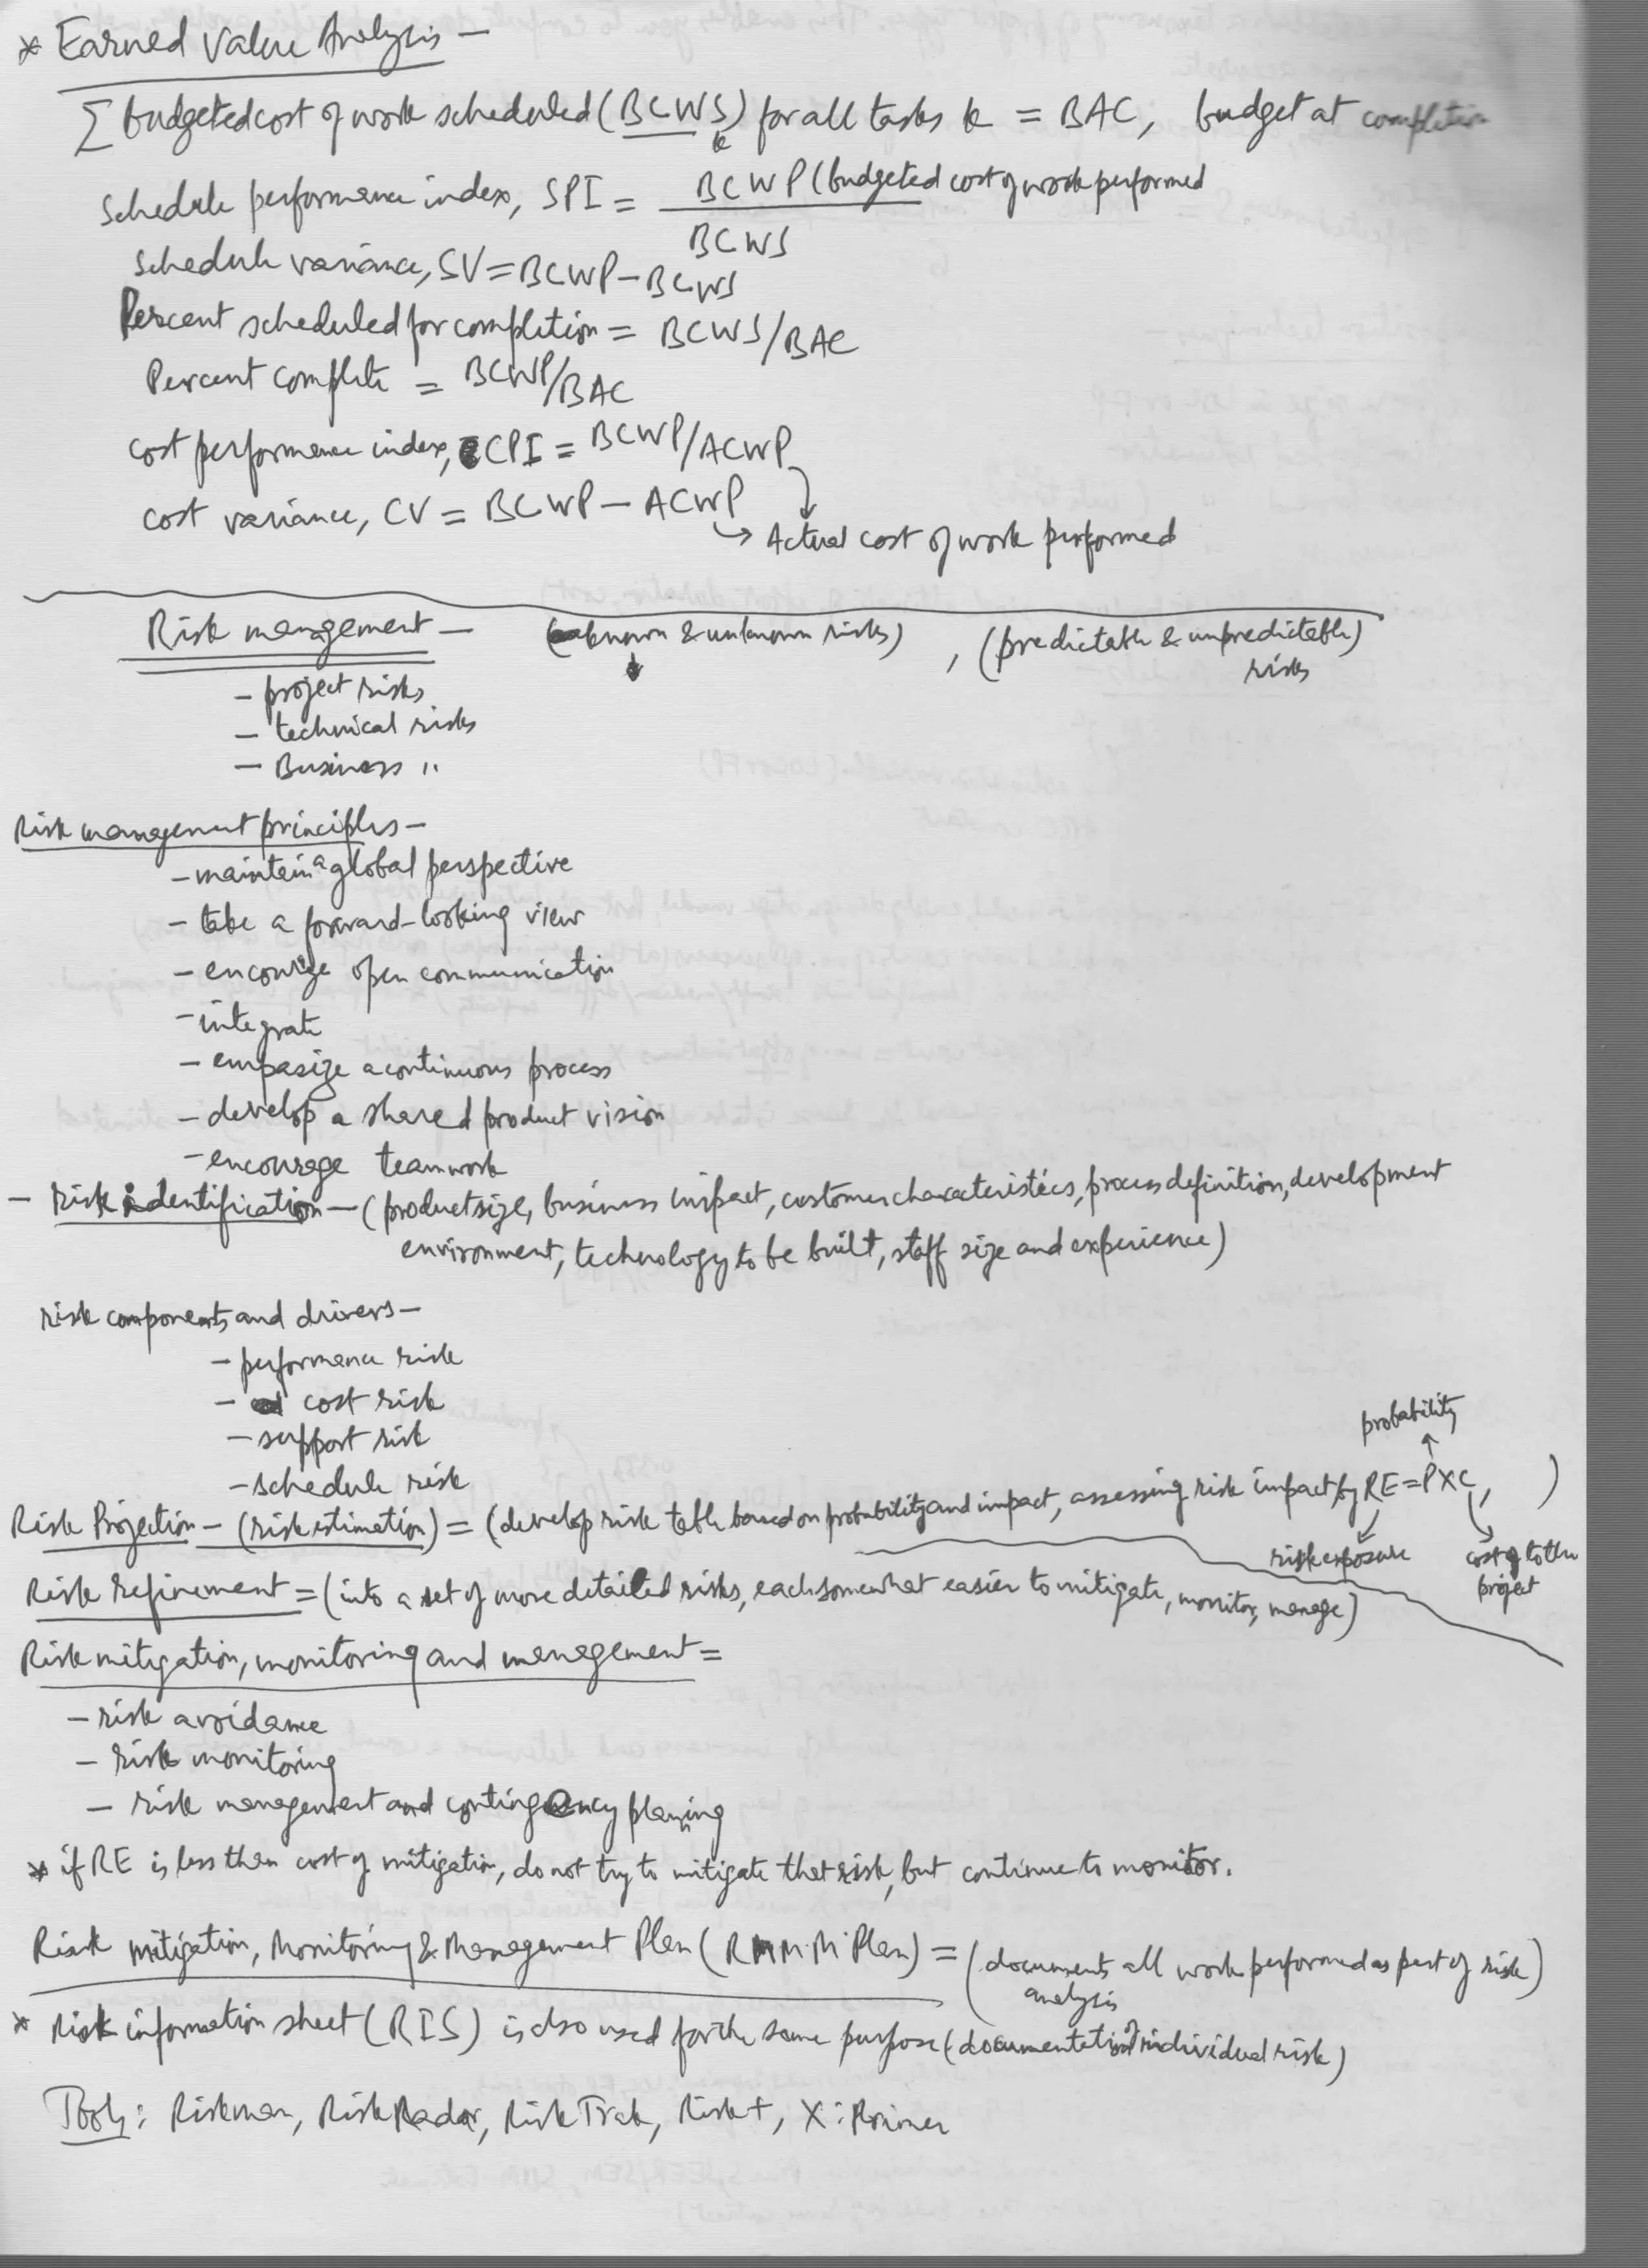 * Earned Value Analysis -
∑ budgeted cost of work scheduled (BCWS) for all tasks k = BAC, budget at completion
k
Schedule performance index, SPI = BCWP (budgeted cost of work performed
BCWS
Schedule variance, SV = BCWP - BCWS
Percent scheduled for completion = BCWS/BAC
Percent complete = BCWP/BAC
cost performance index, CPI = BCWP/ACWP
cost variance, CV = BCWP - ACWP
→ Actual cost of work performed
Risk management - (known & unknown risks), (predictable & unpredictable)
risks
- project risks
- technical risks
- Business "
Risk management principles -
- maintain a global perspective
- take a forward-looking view
- encourage open communication
- integrate
- empasize a continuous process
- develop a shared product vision
- encourage teamwork
- Risk identification - (product size, business impact, customer characteristics, process definition, development
environment, technology to be built, staff size and experience)
risk components and drivers -
- performance risk
- cost risk
- support risk
- schedule risk
probability
↑
Risk Projection - (risk estimation) = (develop risk table based on probability and impact, assessing risk impact by RE = P X C, )
risk exposure
cost of to the
project
Risk refinement = (into a set of more detailed risks, each somewhat easier to mitigate, monitor, manage)
Risk mitigation, monitoring and management =
- risk avoidance
- risk monitoring
- risk management and contingency planing
* if RE is less then cost of mitigation, do not try to mitigate that risk, but continue to monitor.
Risk mitigation, Monitoring & Management Plan (RMMM Plan) = (documents all work performed as part of risk)
analysis
* Risk information sheet (RIS) is also used for the same purpose (documentation of individual risk)
Tools: Riskman, RiskRadar, RiskTrak, Risk+, X:Primer